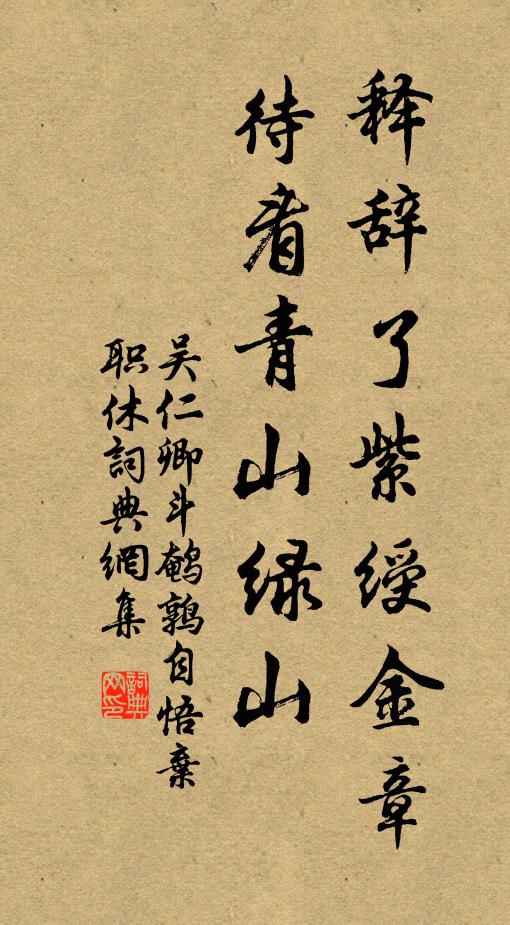 释辞了紫绶金章
待看青山绿山
吴仁卿斗鹌鹑自悟弃
职休詞典網集
詞典
网印